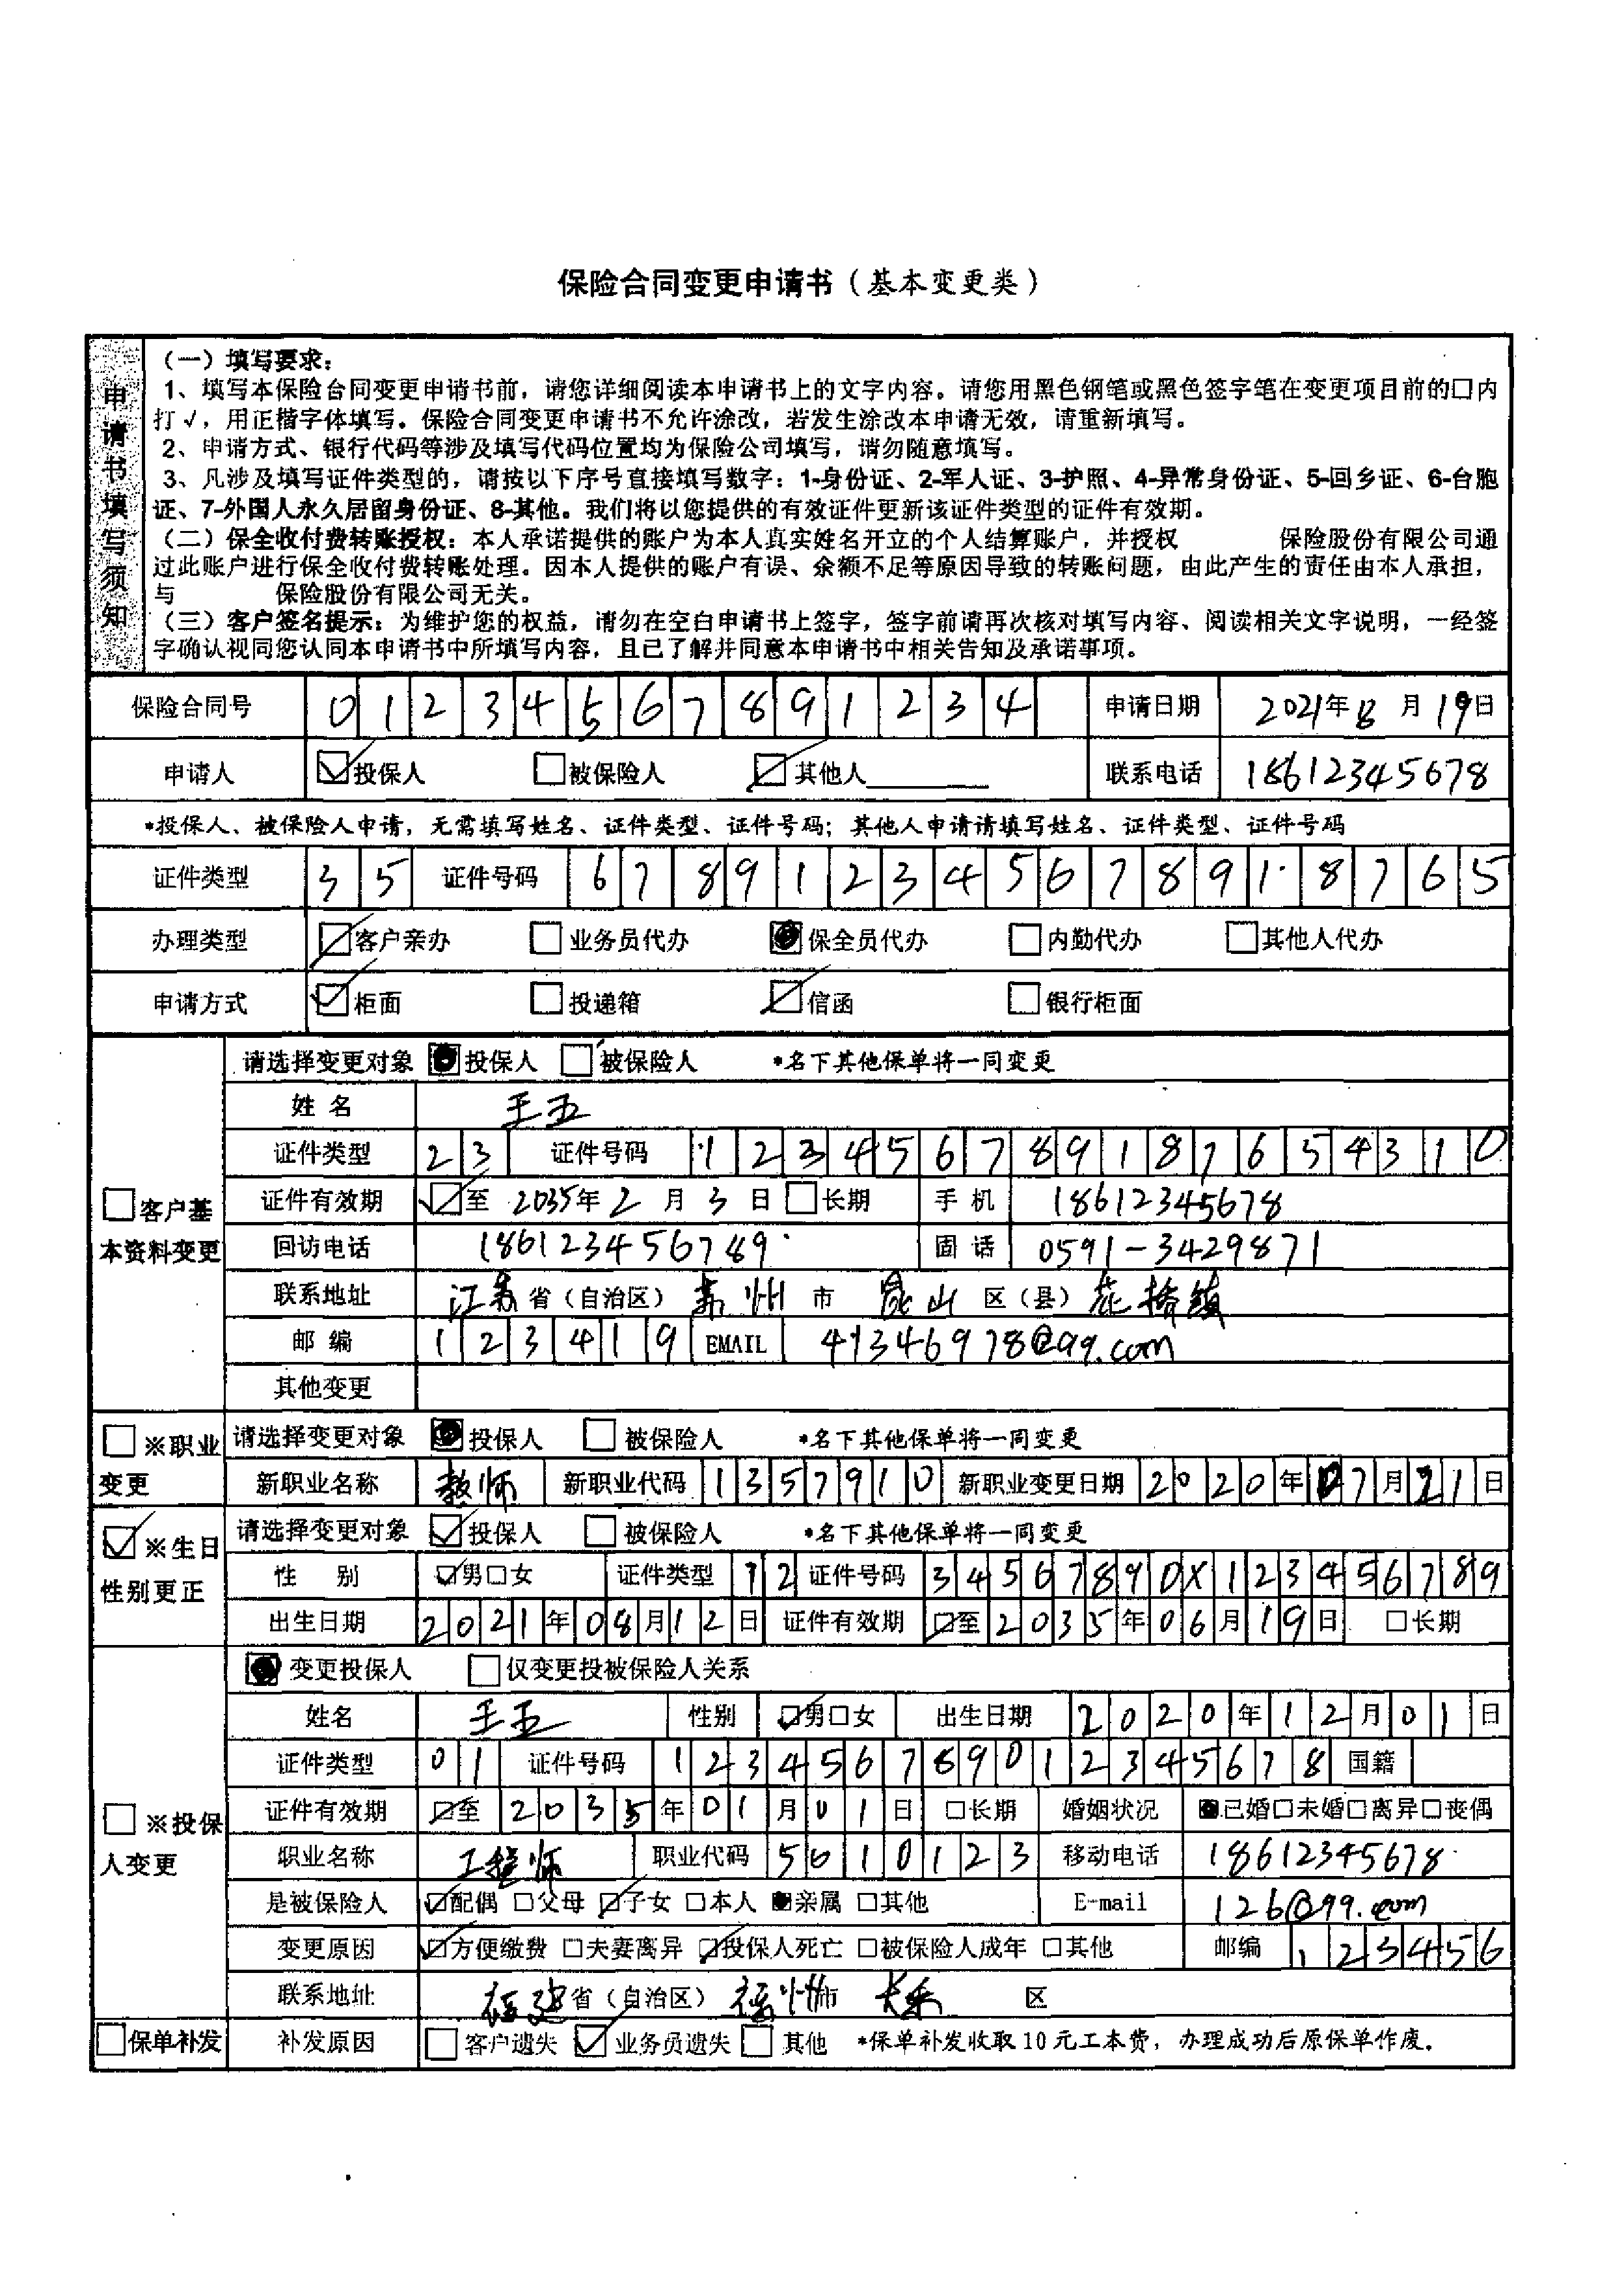 保险合同变更申请书（基本变更类）
申请书填写须知
（一）填写要求：
1、填写本保险合同变更申请书前，请您详细阅读本申请书上的文字内容。请您用黑色钢笔或黑色签字笔在变更项目前的□内
打√，用正楷字体填写。保险合同变更申请书不允许涂改，若发生涂改本申请无效，请重新填写。
2、申请方式、银行代码等涉及填写代码位置均为保险公司填写，请勿随意填写。
3、凡涉及填写证件类型的，请按以下序号直接填写数字：1-身份证、2-军人证、3-护照、4-异常身份证、5-回乡证、6-台胞
证、7-外国人永久居留身份证、8-其他。我们将以您提供的有效证件更新该证件类型的证件有效期。
（二）保全收付费转账授权：本人承诺提供的账户为本人真实姓名开立的个人结算账户，并授权 保险股份有限公司通
过此账户进行保全收付费转账处理。因本人提供的账户有误、余额不足等原因导致的转账问题，由此产生的责任由本人承担，
与 保险股份有限公司无关。
（三）客户签名提示：为维护您的权益，请勿在空白申请书上签字，签字前请再次核对填写内容、阅读相关文字说明，一经签
字确认视同您认同本申请书中所填写内容，且已了解并同意本申请书中相关告知及承诺事项。
保险合同号 01234567891234 申请日期 2021年8月19日
申请人 ☑投保人 □被保险人 ☑其他人 联系电话 18612345678
*投保人、被保险人申请，无需填写姓名、证件类型、证件号码；其他人申请请填写姓名、证件类型、证件号码
证件类型 35 证件号码 678912345678918765
办理类型 ☑客户亲办 □业务员代办 ■保全员代办 □内勤代办 □其他人代办
申请方式 ☑柜面 □投递箱 ☑信函 □银行柜面
□客户基本资料变更
请选择变更对象 ■投保人 □被保险人 *名下其他保单将一同变更
姓名 王五
证件类型 23 证件号码 123456789187654310
证件有效期 ☑至 2035年2月3日 □长期 手机 18612345678
回访电话 186123456789 固话 0591-3429871
联系地址 江苏省（自治区）苏州市 昆山区（县）花桥镇
邮编 123419 EMAIL 41346978@qq.com
其他变更
□※职业变更
请选择变更对象 ■投保人 □被保险人 *名下其他保单将一同变更
新职业名称 教师 新职业代码 1357910 新职业变更日期 2020年07月21日
☑※生日性别更正
请选择变更对象 ☑投保人 □被保险人 *名下其他保单将一同变更
性别 ☑男□女 证件类型 12 证件号码 34567890X123456789
出生日期 2021年08月12日 证件有效期 ☑至2035年06月19日 □长期
□※投保人变更
■变更投保人 □仅变更投被保险人关系
姓名 王五 性别 ☑男□女 出生日期 2020年12月01日
证件类型 01 证件号码 123456789012345678 国籍
证件有效期 ☑至2035年01月01日 □长期 婚姻状况 ■已婚□未婚□离异□丧偶
职业名称 工程师 职业代码 5610123 移动电话 18612345678
是被保险人 ☑配偶 □父母 ☑子女 □本人 ■亲属 □其他 E-mail 126@qq.com
变更原因 ☑方便缴费 □夫妻离异 ☑投保人死亡 □被保险人成年 □其他 邮编 123456
联系地址 福建省（自治区）福州市 长乐 区
□保单补发 补发原因 □客户遗失 ☑业务员遗失 □其他 *保单补发收取10元工本费，办理成功后原保单作废。